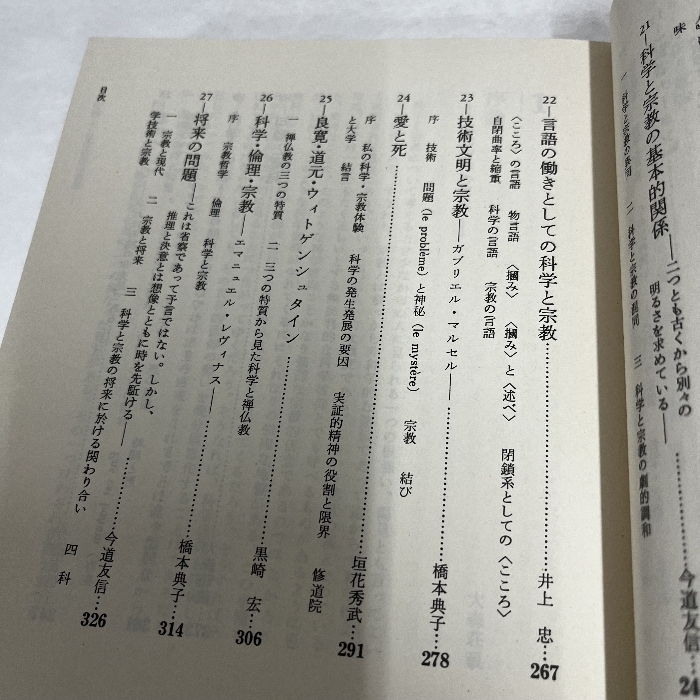 味
21―科学と宗教の基本的関係――二つとも古くから別々の
明るさを求めている――……………今道友信…24
一 科学と宗教の共同 二 科学と宗教の混同 三 科学と宗教の劇的調和
22―言語の働きとしての科学と宗教……………井上 忠…267
〈こころ〉の言語 物言語 〈摑み〉 〈摑み〉と〈述べ〉 閉鎖系としての〈こころ〉
自閉曲率と縮重 科学の言語 宗教の言語
23―技術文明と宗教――ガブリエル・マルセル――……………橋本典子…278
序 技術 問題(le problème)と神秘(le mystère) 宗教 結び
24―愛と死……………垣花秀武…291
序 私の科学・宗教体験 科学の発生発展の要因 実証的精神の役割と限界 修道院
と大学 結言
25―良寛・道元・ウィトゲンシュタイン……………黒崎 宏…306
一 禅仏教の三つの特質 二 三つの特質から見た科学と禅仏教
26―科学・倫理・宗教――エマニュエル・レヴィナス――……………橋本典子…314
序 宗教哲学 倫理 科学と宗教
27―将来の問題――これは省察であって予言ではない。しかし、
推理と決意とは想像とともに時を先駈ける――……………今道友信…326
一 宗教と現代 二 宗教と将来 三 科学と宗教の将来に於ける関わり合い 四 科
学技術と宗教
目次